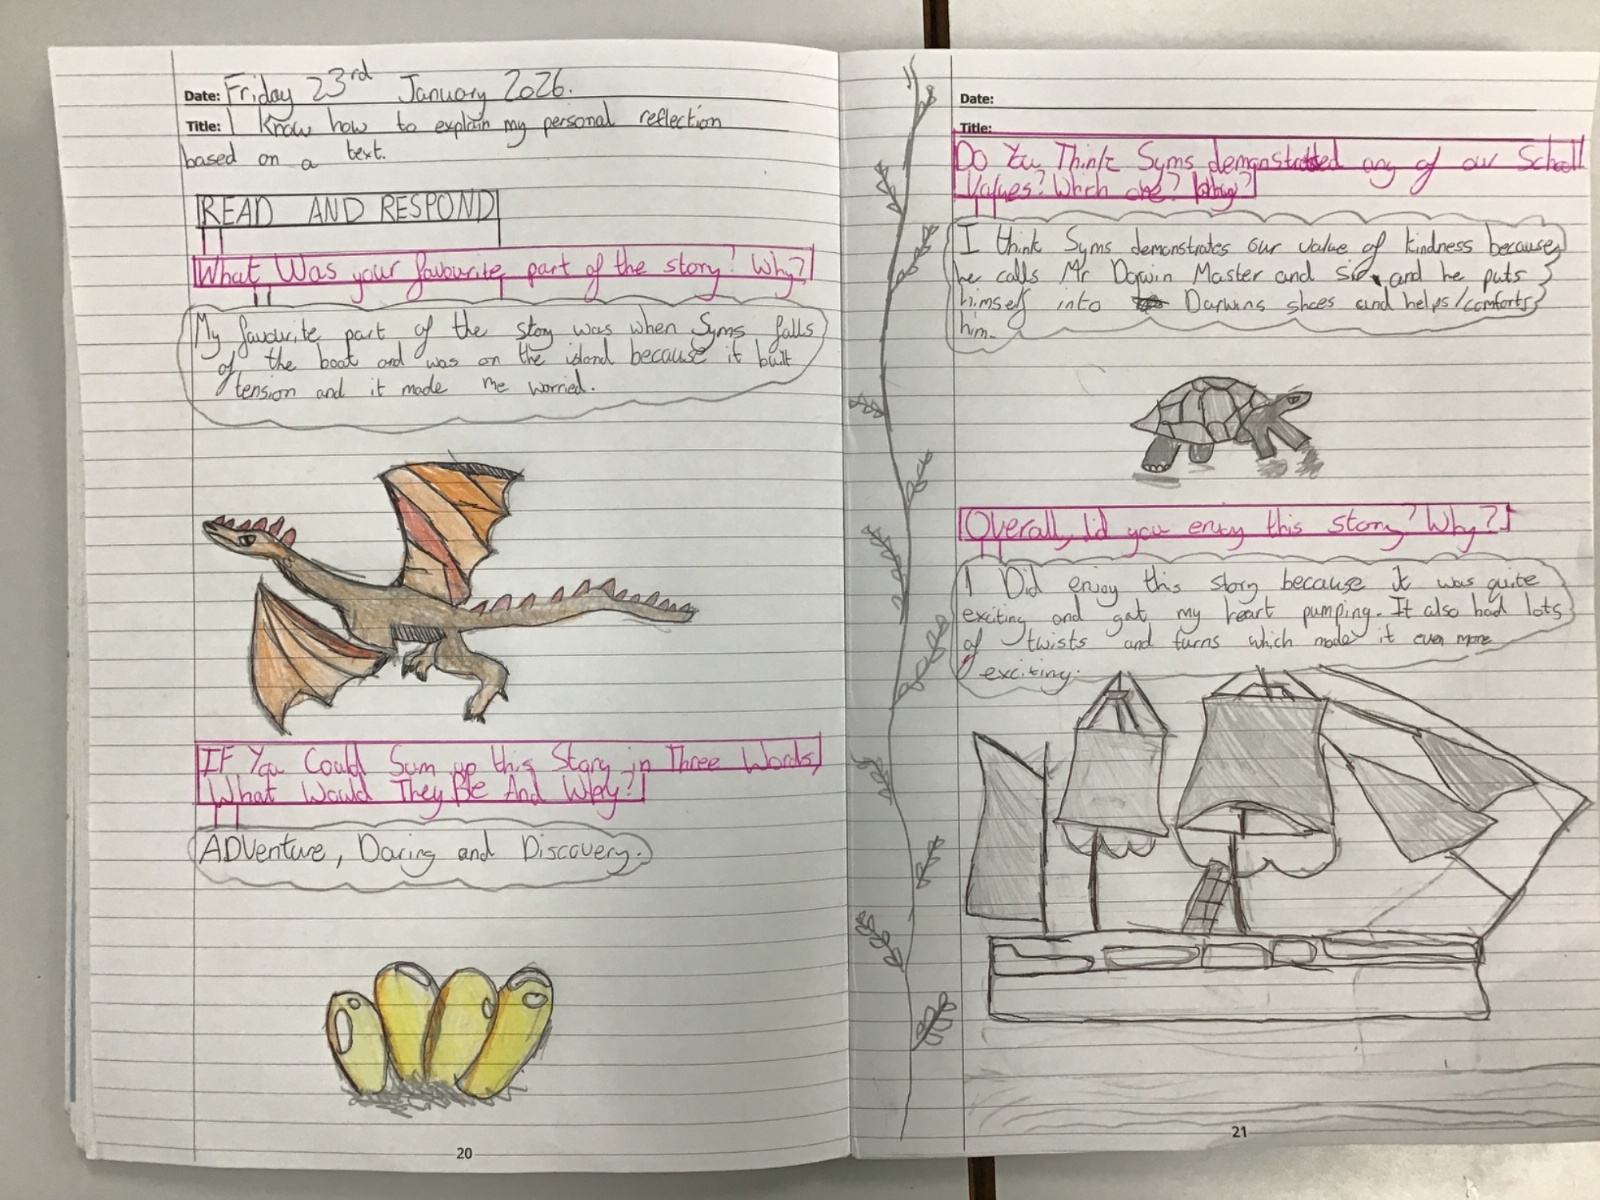 Date: Friday 23rd January 2026.
Title: I Know how to explain my personal reflection
based on a text.
READ AND RESPOND
What Was your favourite part of the story? Why?
My favourite part of the story was when Syms falls
of the boat and was on the island because it built
tension and it made me worried.
IF You Could Sum up this Story in Three Words,
What Would They Be And Why?
ADVenture, Daring and Discovery.
20
Date:
Title:
Do You Think Syms demonstrated any of our School
Values? Which one? Why?
I think Syms demonstrates our value of kindness because
he calls Mr Darwin Master and Sir, and he puts
himself into Darwins shoes and helps/comforts
him.
Overall, did you enjoy this story? Why?
I Did enjoy this story because it was quite
exciting and got my heart pumping. It also had lots
of twists and turns which made it even more
exciting.
21